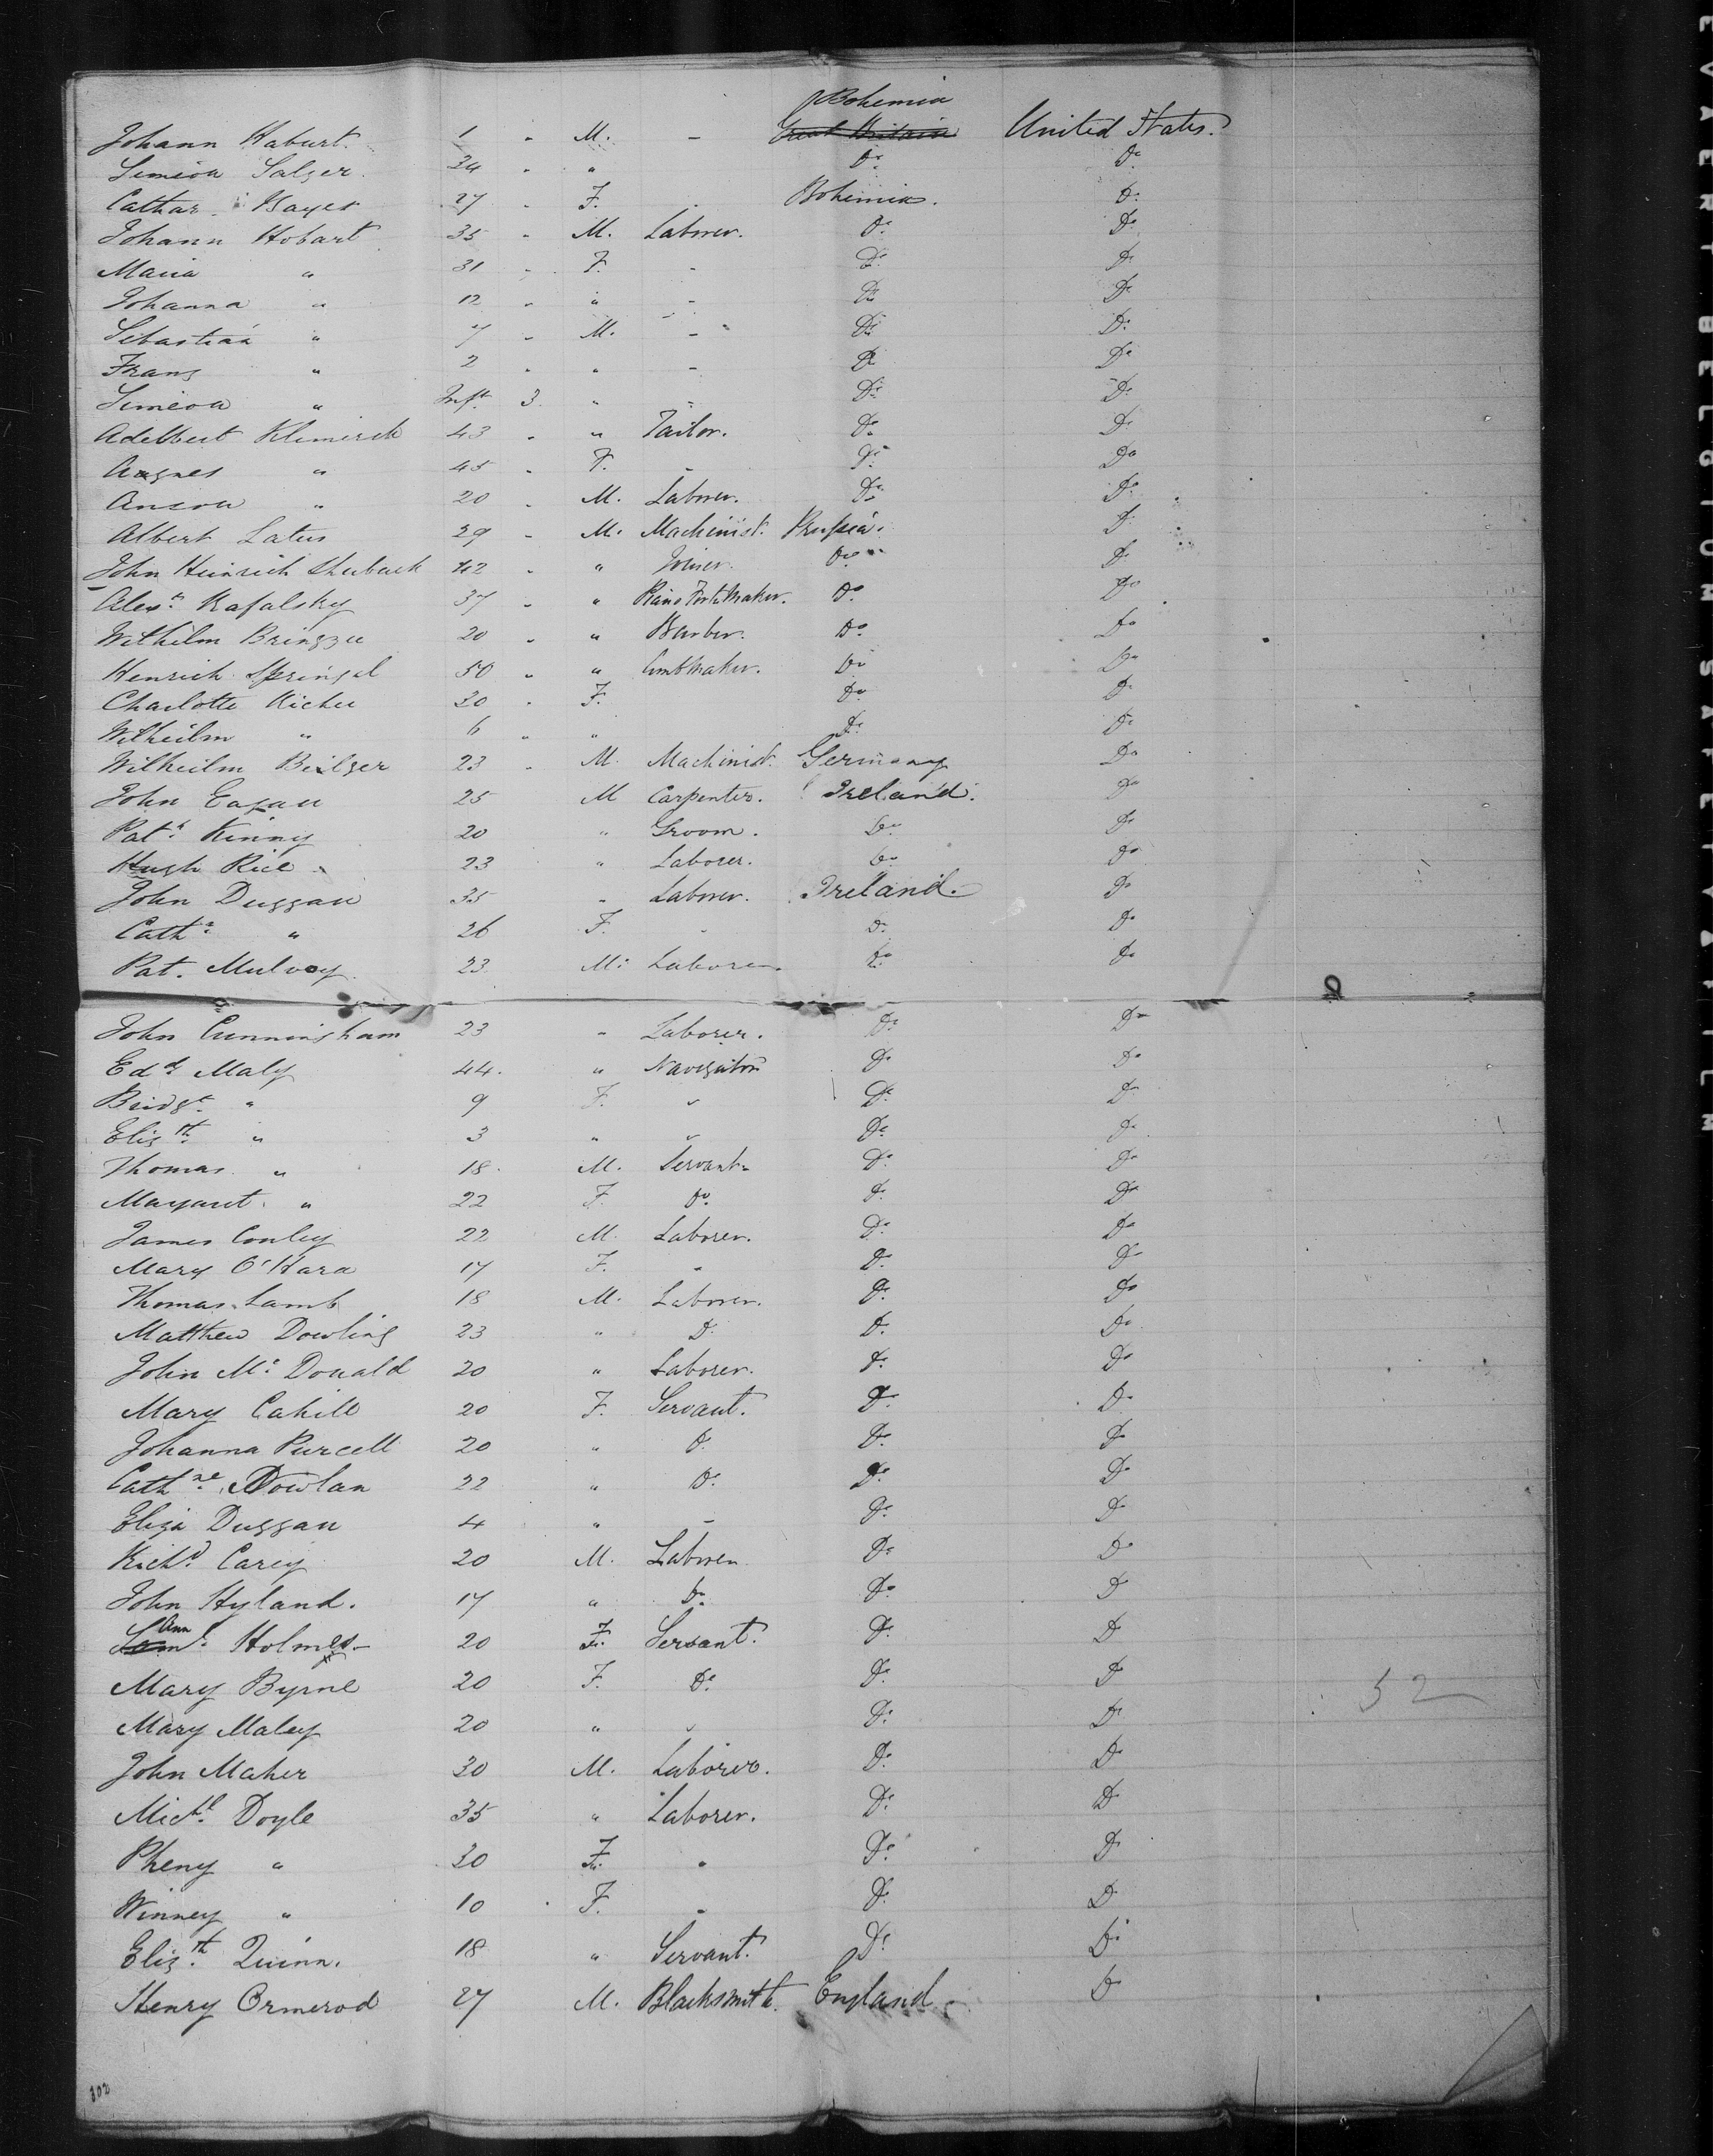 Bohemia
Johann Haburt. 1 " M. - Great Britain United States.
Simeon Salzer. 24 " " Do Do
Cathar. Bayer 27 " F. - Bohemia. Do
Johann Hobart 35 " M. Laborer. Do Do
Maria " 31 " F. - Do Do
Johanna " 12 " " - Do Do
Sebastian " 7 " M. - Do Do
Franz " 2 " " - Do Do
Simeon " Inft. 3. " - Do Do
Adelbert 43 " " Tailor. Do Do
Agnes " 45 " F. - Do Do
" 20 " M. Laborer. Do Do
Albert Latus 29 " M. Machinist. Prussia. Do
John Heinrich Shuback 42 " " Joiner. Do Do
Alexr. Rafalsky 37 " " Piano Forte Maker. Do Do
Wilhilm 20 " " Barber. Do Do
Henrich Springel 50 " " Combmaker. Do Do
Charlotte Richu 30 " F. Do Do
Wilheilm " 6 " " Do Do
Wilheilm Beilzer 23 " M. Machinist. Germany Do
John Eagan 25 M Carpenter. Ireland. Do
Patk. Kinny 20 " Groom. Do Do
Hugh Rice 23 " Laborer. Do Do
John Duggan 35 " Laborer. Ireland. Do
Cathe. " 26 F. - Do Do
Pat. Mulvoy. 23. M. Laborer. Do Do
John Cunningham 23 " Laborer. Do Do
Edd. Maly 44. " Navigator Do Do
Bridgt. " 9 F. " Do Do
Elizth. " 3 " " Do Do
Thomas " 18. M. Servant. Do Do
Margaret. " 22 F. Do. Do Do
James Conley 22 M. Laborer. Do Do
Mary O'Hara 17 F. " Do Do
Thomas Lamb 18 M. Laborer. Do Do
Matthew Dowling 23 " Do Do Do
John Mc. Donald 20 " Laborer. Do Do
Mary Cahill 20 F. Servant. Do Do
Johanna Purcell 20 " Do Do Do
Cathne. Dowlan 22 " Do Do Do
Eliza Duggan 4 " - Do Do
Richd. Carey 20 M. Laborer Do Do
John Hyland. 17 " Do Do Do
Ann
Saml. Holmes 20 F. Servant. Do Do
Mary Byrne 20 F. Do. Do Do
52
Mary Maley 20 " " Do Do
John Maher 30 M. Laborer. Do Do
Michl. Doyle 35 " Laborer. Do Do
Pheny " 30 F. " Do Do
Winney " 10 F. " Do Do
Elizth. Quinn. 18 " Servant. Do Do
Henry Ormerod 27 M. Blacksmith. England. Do
302
GEVAERT BELGIUM SAFETY FILM